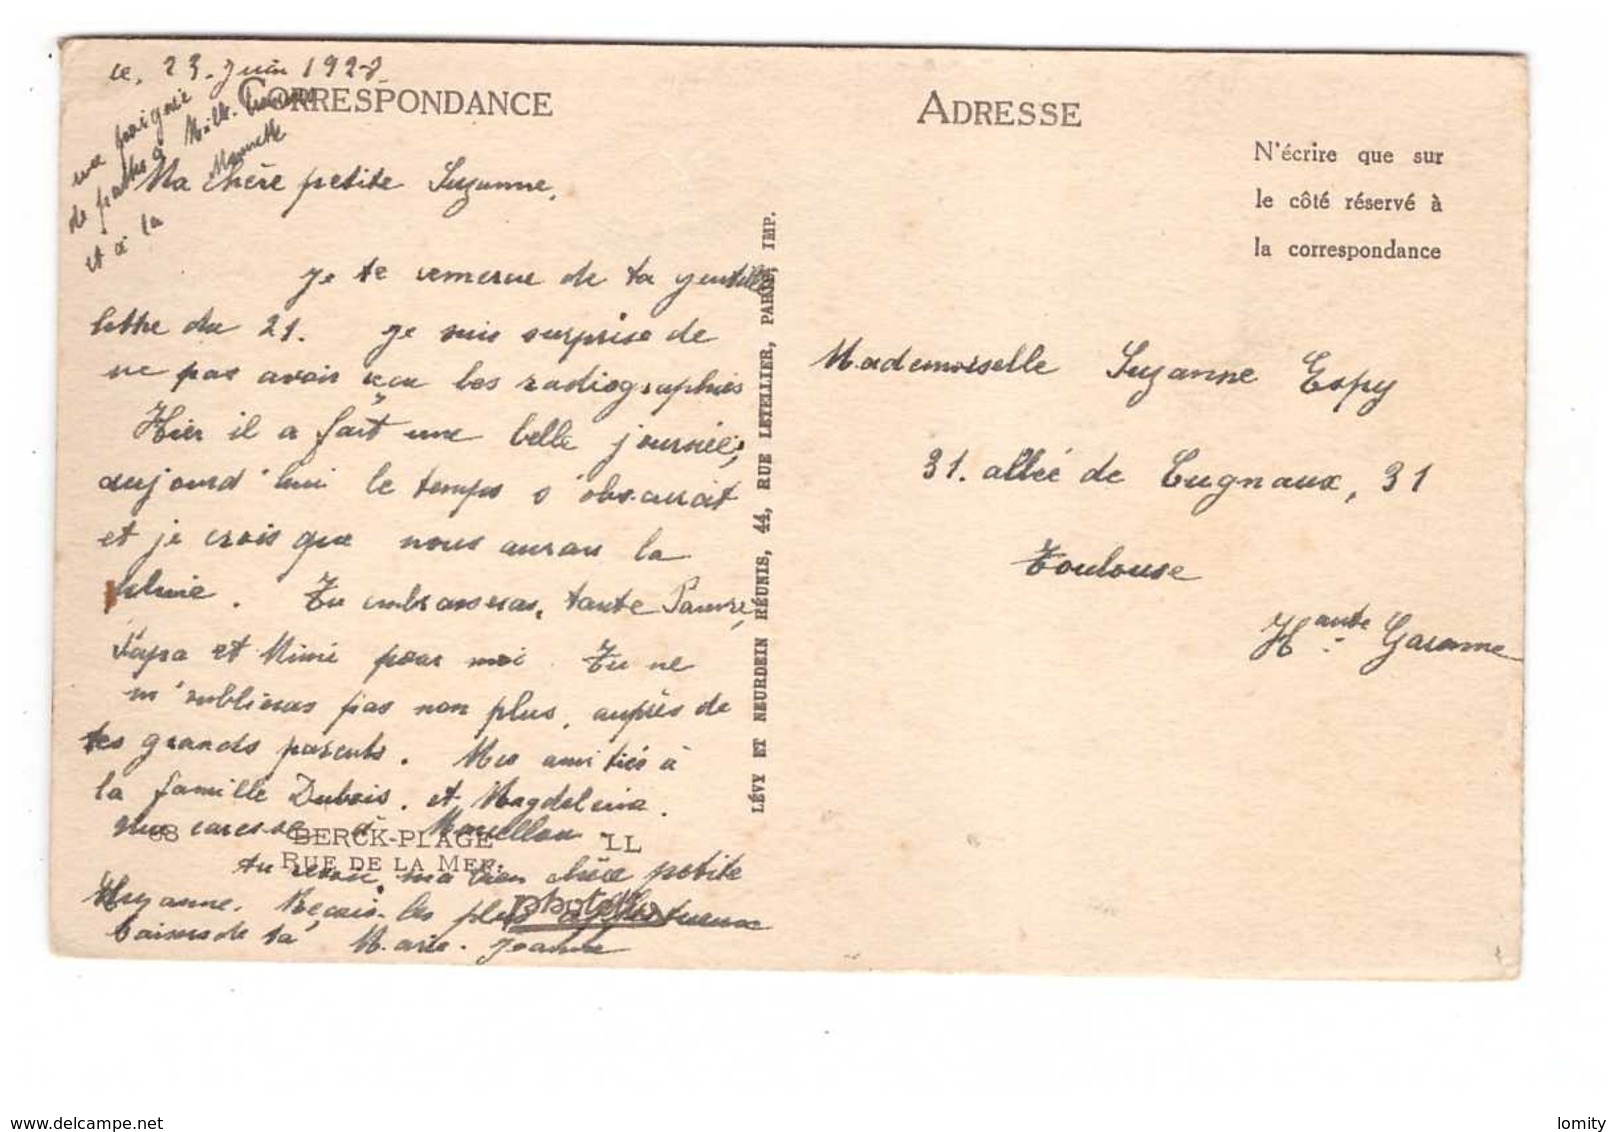 ce, 23. Juin 192
CORRESPONDANCE
une poignée
de pattes à Melle.
et à la Mounette
Ma chère petite Suzanne,
Je te remercie de ta gentille
lettre du 21. Je suis surprise de
ne pas avoir reçu les radiographies
Hier il a fait une belle journée,
aujourd'hui le temps s'obscurcit
et je crois que nous aurons la
pluie. Tu embrasseras, tante
Papa et Mimi pour moi. Tu ne
m'oublieras pas non plus, auprès de
tes grands parents. Mes amitiés à
la famille Dubois. et Magdeleine.
Une caresse à
68 BERCK-PLAGE LL
RUE DE LA MER.
Au revoir, ma bien chère petite
Suzanne. Reçois les plus affectueux
baisers de ta Marie-Jeanne
LÉVY ET NEURDEIN RÉUNIS, 44, RUE LETELLIER, PARIS, IMP.
ADRESSE
N'écrire que sur
le côté réservé à
la correspondance
Mademoiselle Suzanne Espy
31. allée de Cugnaux, 31
Toulouse
Haute Garonne
www.delcampe.net
lomity